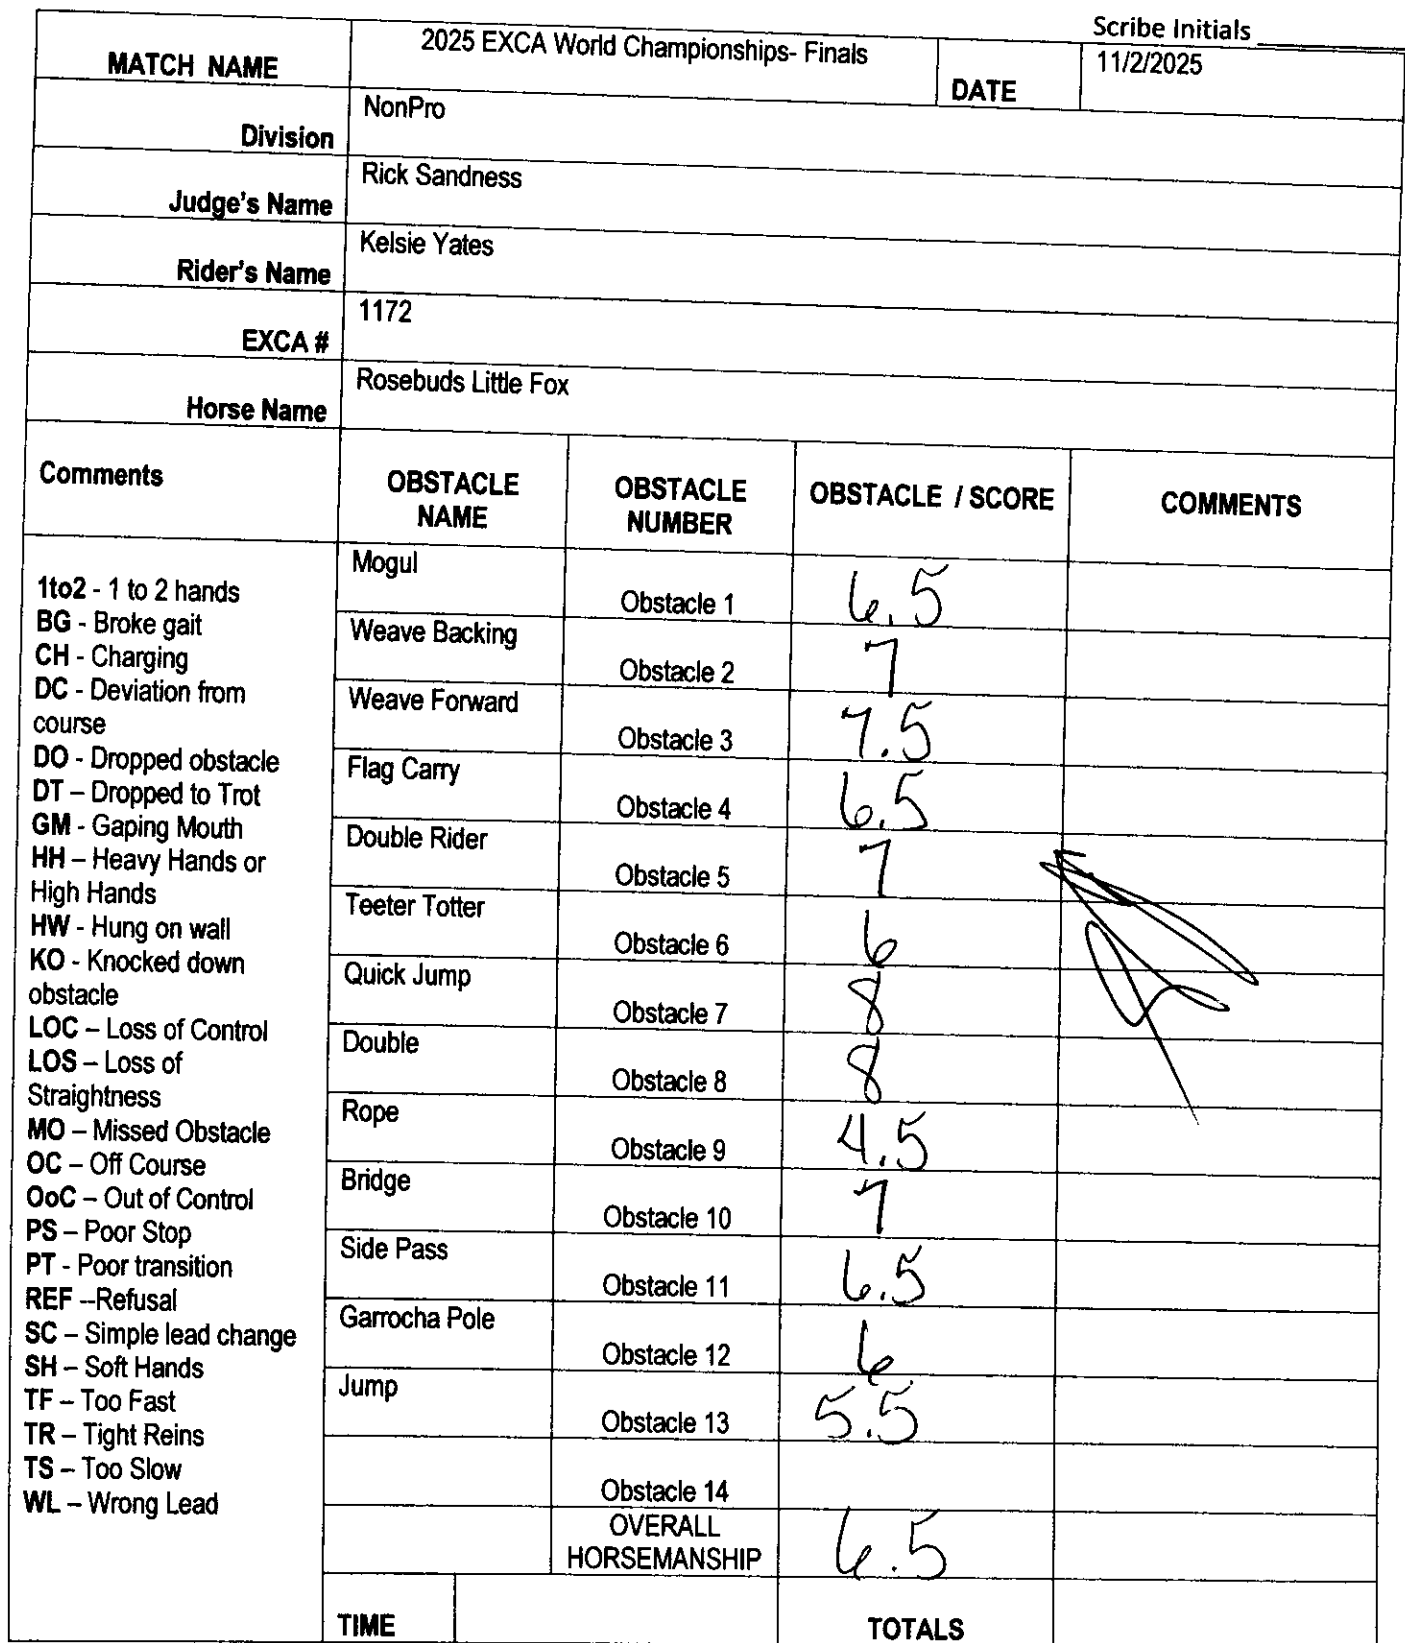 Scribe Initials
MATCH NAME 2025 EXCA World Championships- Finals DATE 11/2/2025
Division NonPro
Judge's Name Rick Sandness
Rider's Name Kelsie Yates
EXCA # 1172
Horse Name Rosebuds Little Fox
Comments OBSTACLE NAME OBSTACLE NUMBER OBSTACLE / SCORE COMMENTS
1to2 - 1 to 2 hands
BG - Broke gait
CH - Charging
DC - Deviation from
course
DO - Dropped obstacle
DT – Dropped to Trot
GM - Gaping Mouth
HH – Heavy Hands or
High Hands
HW - Hung on wall
KO - Knocked down
obstacle
LOC – Loss of Control
LOS – Loss of
Straightness
MO – Missed Obstacle
OC – Off Course
OoC – Out of Control
PS – Poor Stop
PT - Poor transition
REF –Refusal
SC – Simple lead change
SH – Soft Hands
TF – Too Fast
TR – Tight Reins
TS – Too Slow
WL – Wrong Lead
Mogul Obstacle 1 6.5
Weave Backing Obstacle 2 7
Weave Forward Obstacle 3 7.5
Flag Carry Obstacle 4 6.5
Double Rider Obstacle 5 7
Teeter Totter Obstacle 6 6
Quick Jump Obstacle 7 8
Double Obstacle 8 8
Rope Obstacle 9 4.5
Bridge Obstacle 10 7
Side Pass Obstacle 11 6.5
Garrocha Pole Obstacle 12 6
Jump Obstacle 13 5.5
Obstacle 14
OVERALL
HORSEMANSHIP 6.5
TIME TOTALS